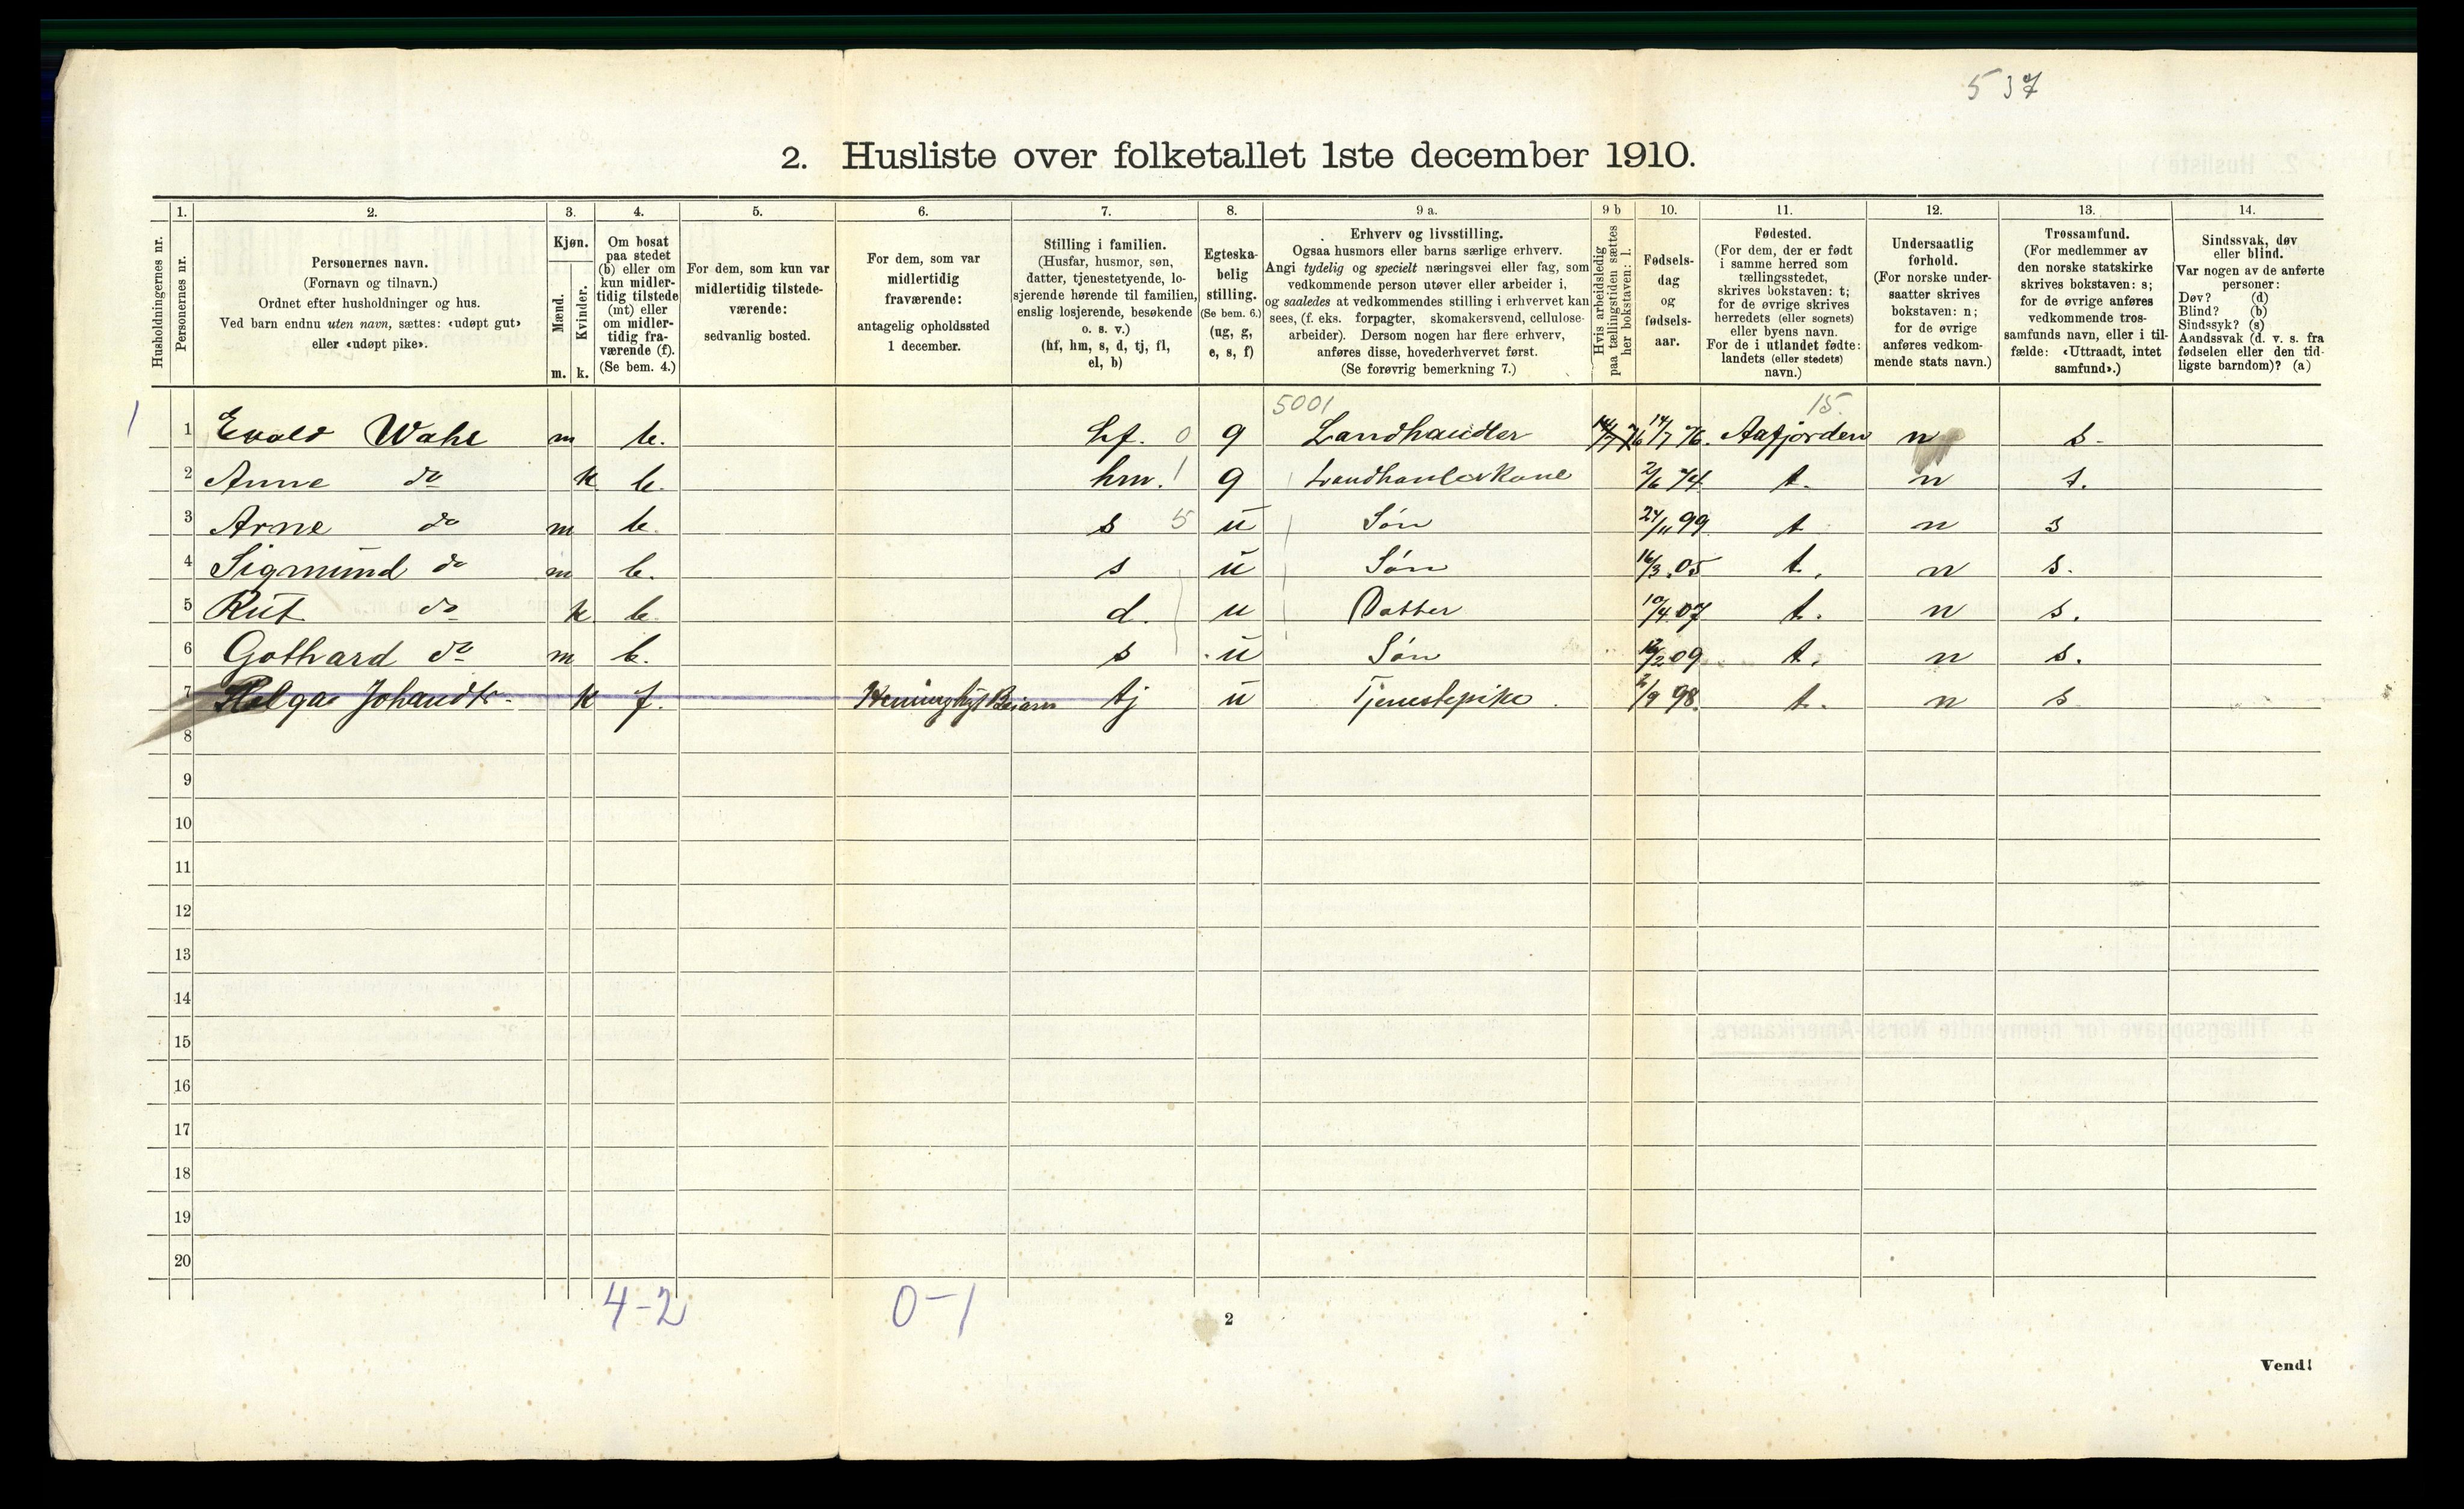 537
2. Husliste over folketallet 1ste december 1910.
1. 2. 3. 4. 5. 6. 7. 8. 9 a. 9 b 10. 11. 12. 13. 14.
Husholdningernes nr.
Personernes nr.
Personernes navn.
(Fornavn og tilnavn.)
Ordnet efter husholdninger og hus.
Ved barn endnu uten navn, sættes: «udøpt gut»
eller «udøpt pike».
Kjøn.
Mænd.
Kvinder.
m. k.
Om bosat
paa stedet
(b) eller om
kun midler-
tidig tilstede
(mt) eller
om midler-
tidig fra-
værende (f).
(Se bem. 4.)
For dem, som kun var
midlertidig tilstede-
værende:
sedvanlig bosted.
For dem, som var
midlertidig
fraværende:
antagelig opholdssted
1 december.
Stilling i familien.
(Husfar, husmor, søn,
datter, tjenestetyende, lo-
sjerende hørende til familien,
enslig losjerende, besøkende
o. s. v.)
(hf, hm, s, d, tj, fl,
el, b)
Egteska-
belig
stilling.
(Se bem. 6.)
(ug, g,
e, s, f)
Erhverv og livsstilling.
Ogsaa husmors eller barns særlige erhverv.
Angi tydelig og specielt næringsvei eller fag, som
vedkommende person utøver eller arbeider i,
og saaledes at vedkommendes stilling i erhvervet kan
sees, (f. eks. forpagter, skomakersvend, cellulose-
arbeider). Dersom nogen har flere erhverv,
anføres disse, hovederhvervet først.
(Se forøvrig bemerkning 7.)
Hvis arbeidsledig
paa tællingstiden sættes
her bokstaven: l.
Fødsels-
dag
og
fødsels-
aar.
Fødested.
(For dem, der er født
i samme herred som
tællingsstedet,
skrives bokstaven: t;
for de øvrige skrives
herredets (eller sognets)
eller byens navn.
For de i utlandet fødte:
landets (eller stedets)
navn.)
Undersaatlig
forhold.
(For norske under-
saatter skrives
bokstaven: n;
for de øvrige
anføres vedkom-
mende stats navn.)
Trossamfund.
(For medlemmer av
den norske statskirke
skrives bokstaven: s;
for de øvrige anføres
vedkommende tros-
samfunds navn, eller i til-
fælde: «Uttraadt, intet
samfund».)
Sindssvak, døv
eller blind.
Var nogen av de anførte
personer:
Døv? (d)
Blind? (b)
Sindssyk? (s)
Aandssvak (d. v. s. fra
fødselen eller den tid-
ligste barndom)? (a)
5001 15.
1 1 Evald Wahl m b. hf. 0 g Landhandler 14/7 76 14/7 76. Aafjorden n s.
2 Anne do k b. hm. 1 g Landhanlerkone 2/6 74 t. n s.
3 Arne do m b. s 5 u Søn 24/11 99 t n s
4 Sigmund do m b. s u Søn 16/3 05 t. n s.
5 Rut do k b. d. u Datter 10/4 07 t. n s.
6 Gothard do m b. s u Søn /2 09 t. n s.
7 Helga Johandtr. k f. Beiarn tj u Tjenestepike. 2/9 98. t. n s
8
9
10
11
12
13
14
15
16
17
18
19
20
4-2 0-1
2
Vend!